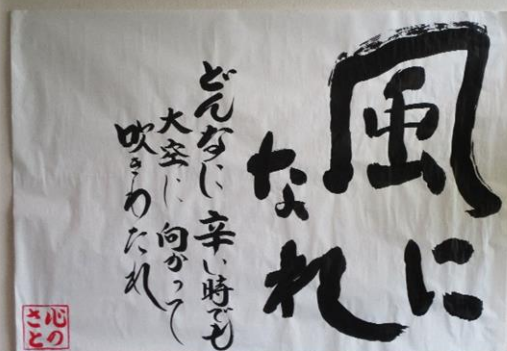 風に
なれ
どんなに辛い時でも
大空に向かって
吹きわたれ
心の
さと